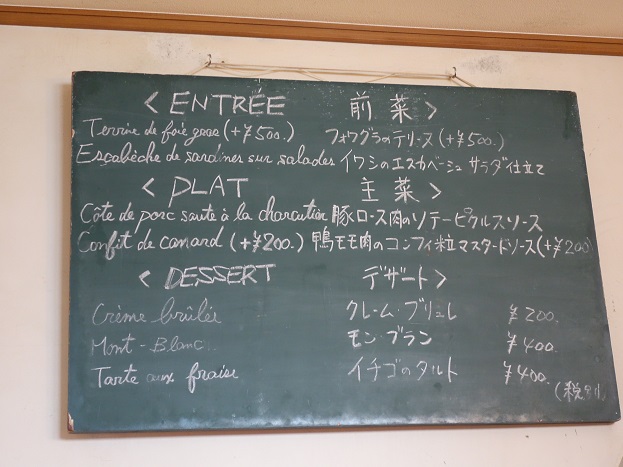 < ENTRÉE 前菜 >
Terrine de foie gras (+¥500.) フォワグラのテリーヌ (+¥500.)
Escabèche de sardines sur salades イワシのエスカベーシュ サラダ仕立て
< PLAT 主菜 >
Côte de porc sauté à la charcutière 豚ロース肉のソテーピクルスソース
Confit de canard (+¥200.) 鴨モモ肉のコンフィ粒マスタードソース(+¥200)
< DESSERT デザート >
Crème brûlée クレーム・ブリュレ ¥200.
Mont-Blanc モン・ブラン ¥400.
Tarte aux fraise イチゴのタルト ¥400.
(税